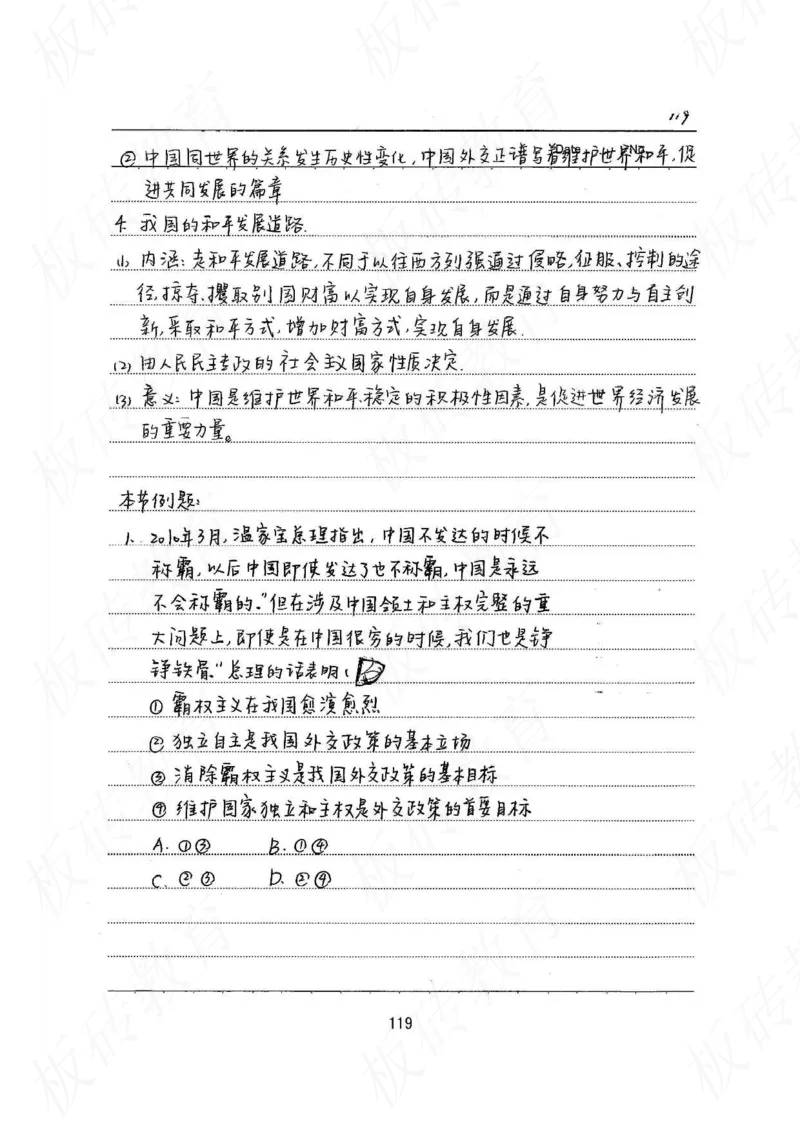 119
② 中国同世界的关系发生历史性变化，中国外交正谱写着维护世界和平，促
进共同发展的篇章
4. 我国的和平发展道路.
(1) 内涵：走和平发展道路，不同于以往西方列强通过侵略，征服、控制的途
径，掠夺、攫取别国财富以实现自身发展，而是通过自身努力与自主创
新，采取和平方式，增加财富方式，实现自身发展.
(2) 由人民民主专政的社会主义国家性质决定.
(3) 意义：中国是维护世界和平、稳定的积极性因素，是促进世界经济发展
的重要力量。
本节例题：
1. 2010年3月，温家宝总理指出，中国不发达的时候不
称霸，以后中国即使发达了也不称霸，中国是永远
不会称霸的。"但在涉及中国领土和主权完整的重
大问题上，即使是在中国很穷的时候，我们也是铮
铮铁骨。"总理的话表明（
① 霸权主义在我国愈演愈烈
② 独立自主是我国外交政策的基本立场
③ 消除霸权主义是我国外交政策的基本目标
④ 维护国家独立和主权是外交政策的首要目标
A. ①③ B. ①④
C. ②③ D. ②④
119
板砖教育